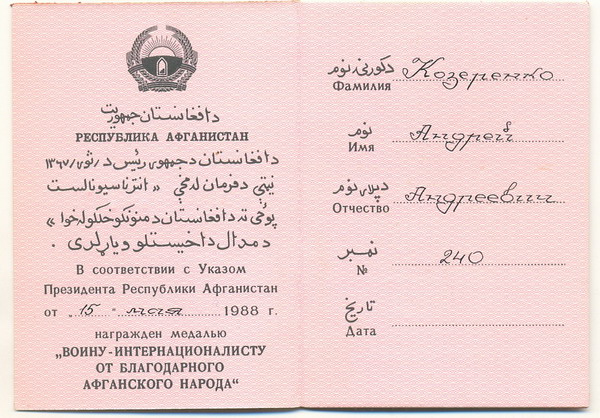 دافغانستان جمهوریت
РЕСПУБЛИКА АФГАНИСТАН
دافغانستان دجمهوری رئیس د ثور/۱۳۶۷
نیټې دفرمان له مخې « انترناسیونالست
پوځی ته دافغانستان دمننوکوونکو خلکو له خوا »
دمدال داخیستلو ویاړ لری .
В соответствии с Указом
Президента Республики Афганистан
от „15 “ мая 1988 г.
награжден медалью
„ВОИНУ-ИНТЕРНАЦИОНАЛИСТУ
ОТ БЛАГОДАРНОГО
АФГАНСКОГО НАРОДА“
دکورنۍ نوم
Козеренко
Фамилия
نوم
Андрей
Имя
دپلار نوم
Андреевич
Отчество
نمبر
240
№
تاریخ
Дата